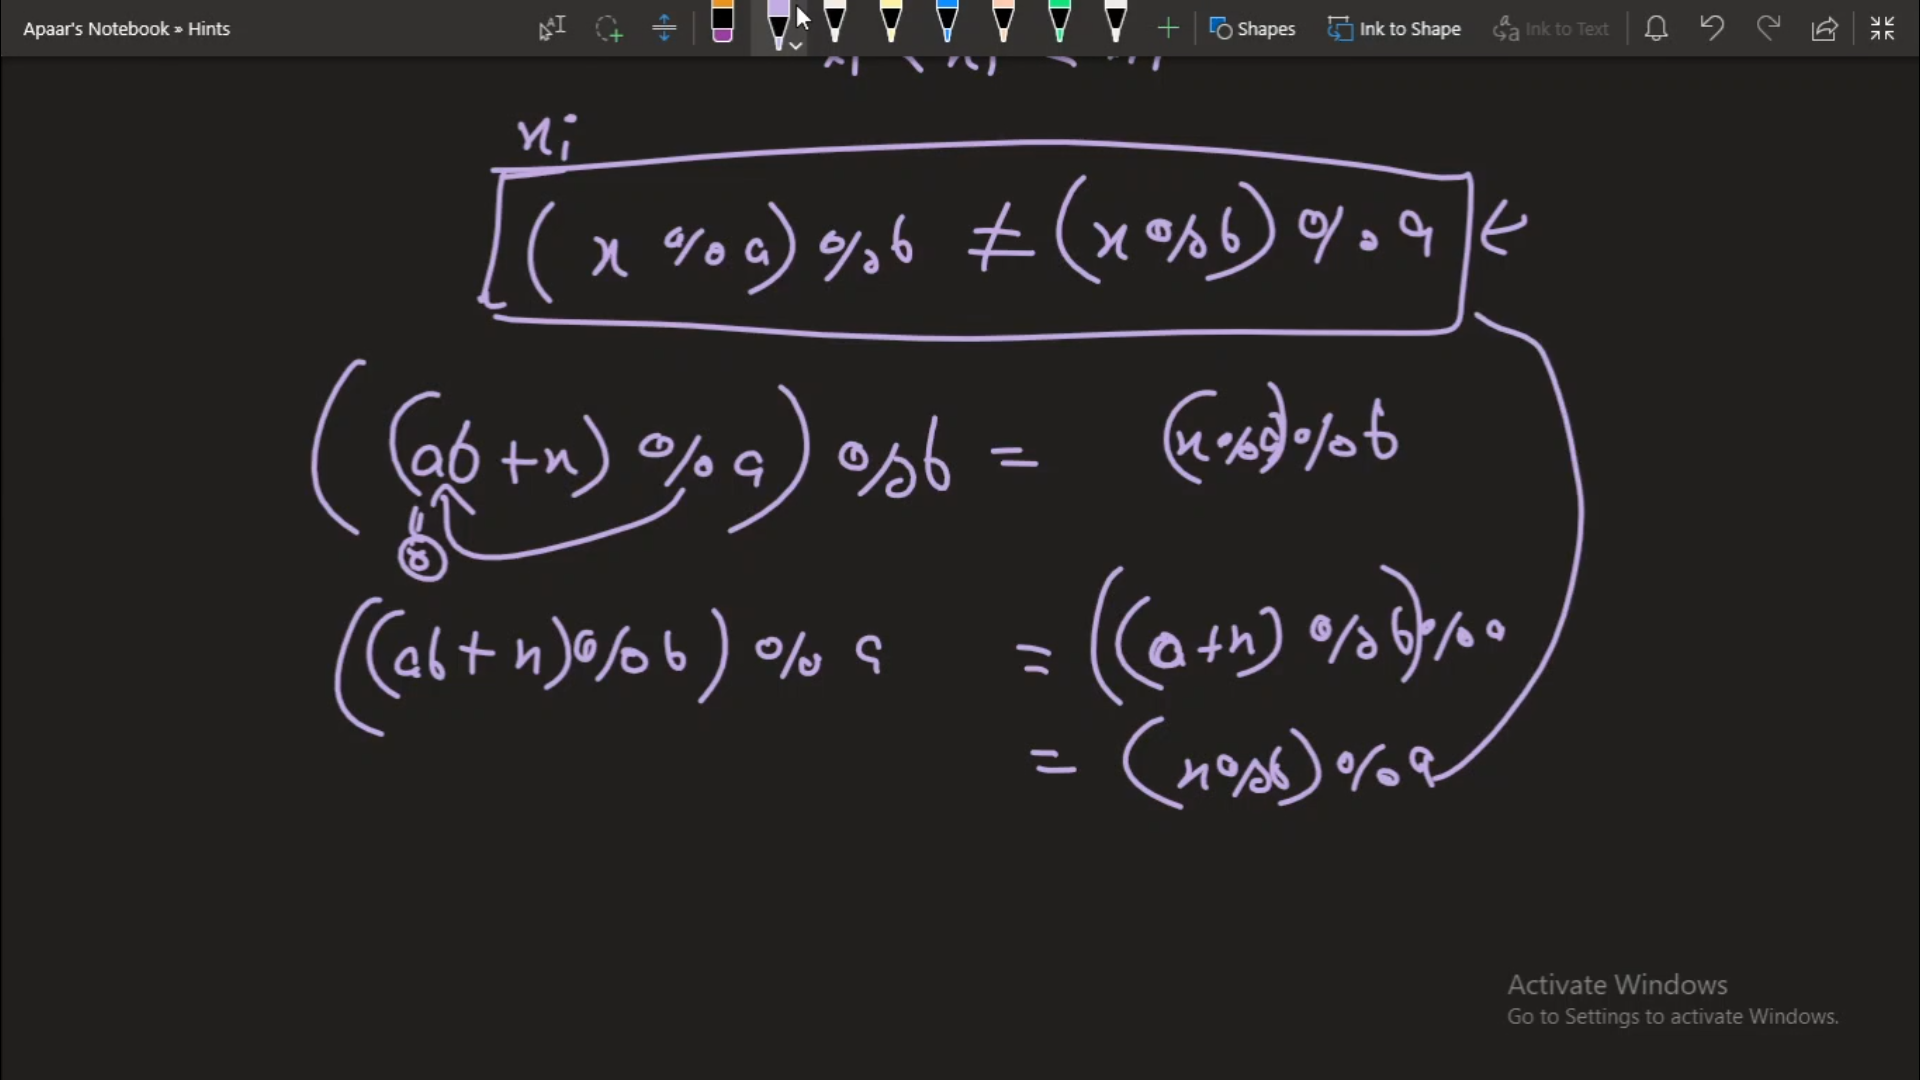 Apaar's Notebook » Hints
Shapes
Ink to Shape
Ink to Text
xi
(x % a) % b ≠ (x % b) % a
((ab + x) % a) % b = (x % a) % b
((ab + x) % b) % a = ((a + x) % b) % a
= (x % b) % a
Activate Windows
Go to Settings to activate Windows.